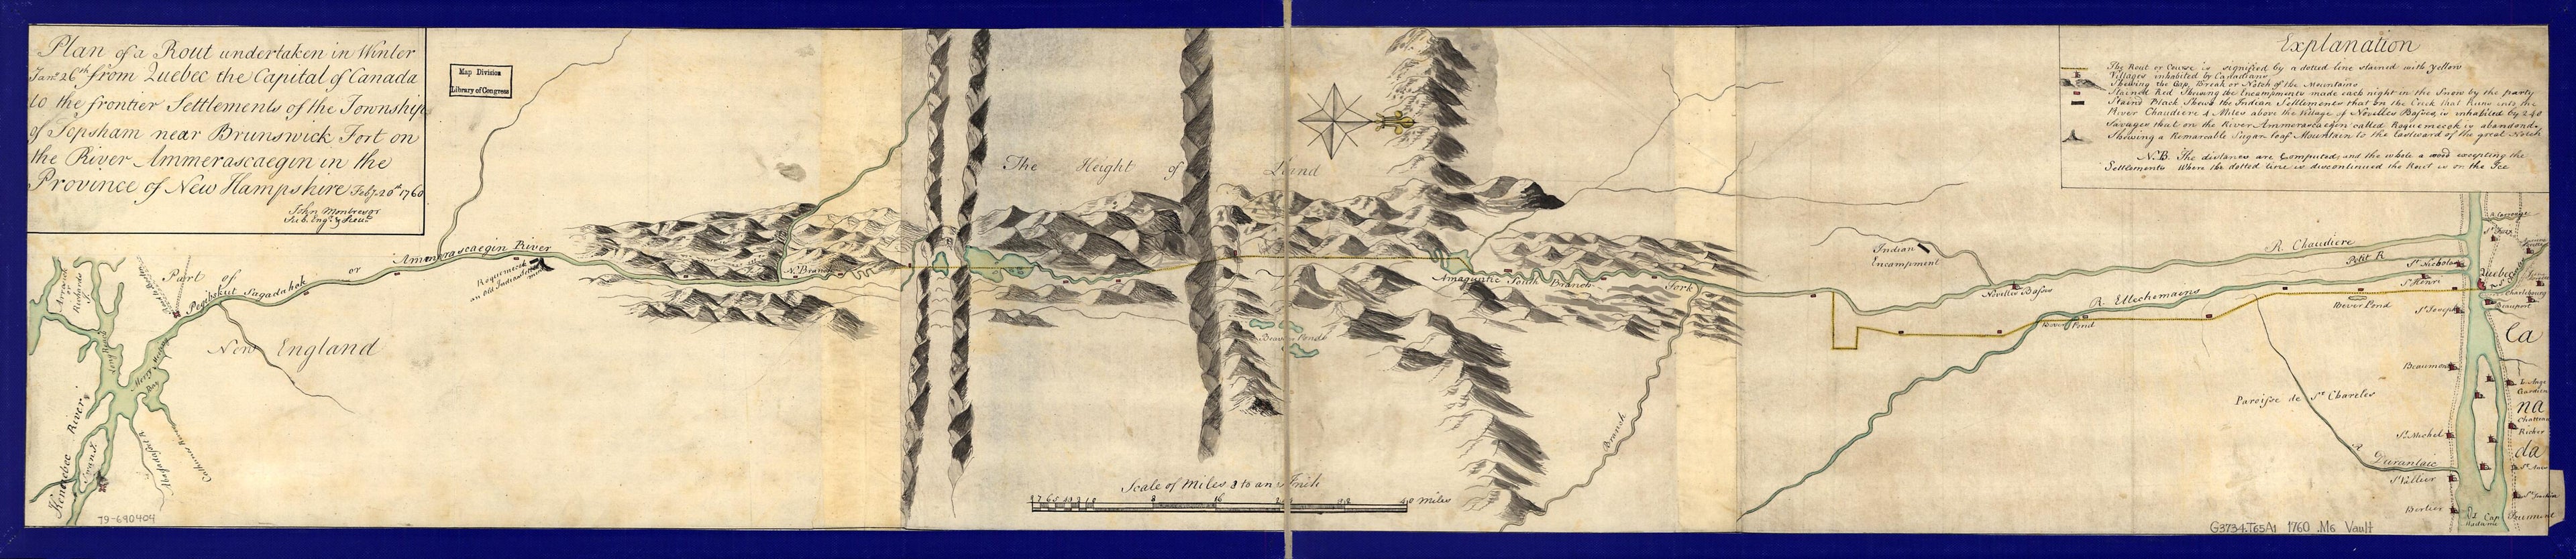 Plan of a Rout undertaken in Winter
Jany 26th from Quebec the Capital of Canada
to the frontier Settlements of the Township
of Topsham near Brunswick Fort on
the River Ammerascaegin in the
Province of New Hampshire Feby 20th 1760
John Montresor
Sub. Engr. & Lieut
Map Division
Library of Congress
Explanation
The Rout or Course is signified by a dotted line stained with yellow
Villages inhabited by Canadians
Shewing the Gap, Break or Notch of the Mountains
Stained Red Shewing the Encampments made each night in the Snow by the party
Staind Black Shews the Indian Settlement that on the Creek that Runs into the
River Chaudiere 4 Miles above the Village of Novelles Basses, is inhabited by 240
Savages that on the River Ammerascaegin called Roquemecok is abandond.
Shewing a Remarkable Sugar loaf Mountain to the Eastward of the great Notch
N.B. The distances are Computed and the whole a wood excepting the
Settlements Where the dotted line is discontinued the Rout is on the Ice
The Height of Land
Part of
New England
Pegibskut Sagadahok or Ammerascaegin River
Roquemecok
an Old Indian Settlement
N. Branch
Kenebec River
Arrasick or
Richards I.
Long Reach
Merry Meeting
Bay
Swan I.
Abagadasset R
Cathance River
Amaguntic South Branch
Fork
Beaver Ponds
Branch
Scale of Miles 8 to an Inch
8 7 6 5 4 3 2 1 0
8
16
24
32
40 Miles
Indian
Encampment
R. Chaudiere
Petit R
Novelles Basses
R. Ettechemains
Bever Pond
Bever Pond
Paroisse de St. Charles
R Durantaie
St. Nicholas
St. Henri
St. Joseph
Beaumont
St. Michel
St. Vallier
Bertier
St. Foix
Quebec
Charlebourg
Beauport
L'Ange
Gardien
Chateau
Richer
St. Anne
Ca
na
da
79-690404
G3734.T65A1 1760 .M6 Vault